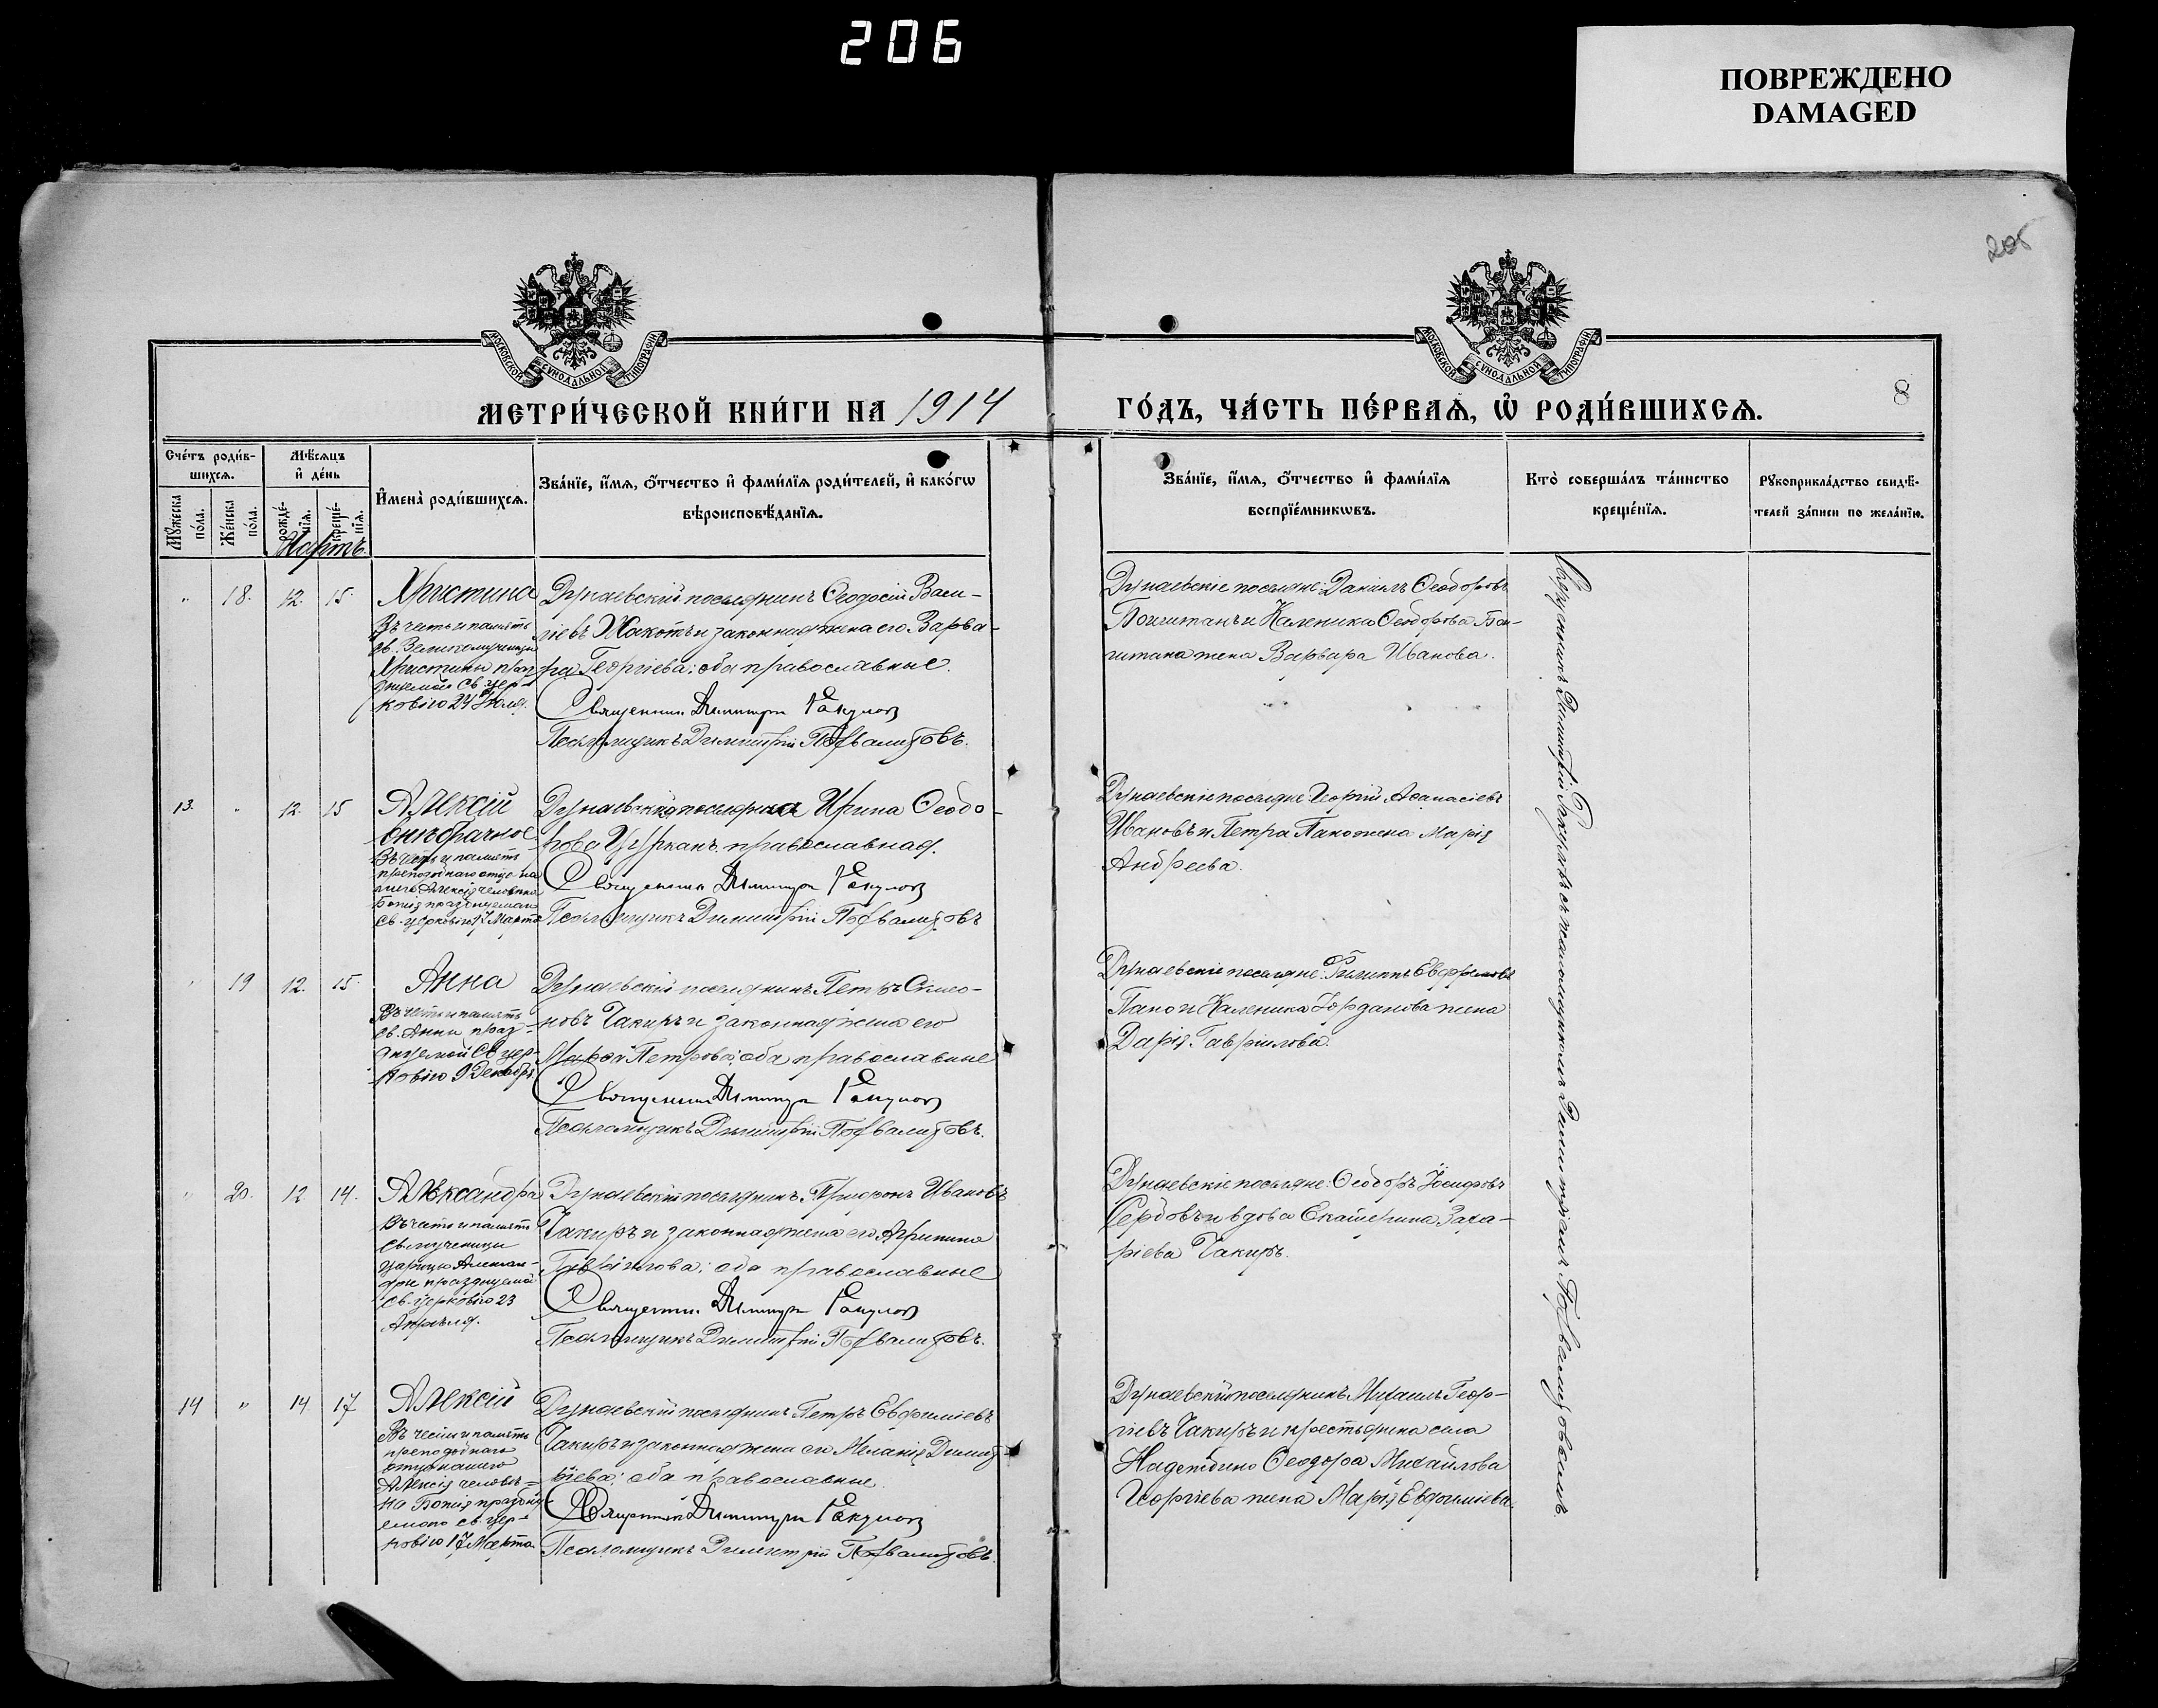 206
ПОВРЕЖДЕНО
DAMAGED
205
МОСКОВСКОЙ СУНОДАЛЬНОЙ ТИПОГРАФІИ
МОСКОВСКОЙ СУНОДАЛЬНОЙ ТИПОГРАФІИ
МЕТРИ́ЧЕСКОЙ КНИ́ГИ НА 1914
ГО́ДЪ, ЧА́СТЬ ПЕ́РВАѦ, Ѡ РОДИ́ВШИХСѦ.
8
Сче́тъ роди́в-
шихсѧ.
Мꙋжеска по́ла.
Же́нска по́ла.
Мѣ́сѧцъ
и де́нь
рожде́-
нїѧ.
креще́-
нїѧ.
Имена̀ роди́вшихсѧ.
Зва́нїе, и́мѧ, о́тчество и фами́лїѧ роди́телей, и како́гѡ
вѣроисповѣ́данїѧ.
Зва́нїе, и́мѧ, о́тчество и фами́лїѧ
воспрїе́мникѡвъ.
Кто̀ соверша́лъ та́инство
креще́нїѧ.
Рꙋкоприкла́дство свидѣ́-
телей за́писи по жела́нїю.
Мартъ.
" 18. 12. 15.
Христина
Въ честь и память
св. Великомученицы
Христины праз
днуемой Св. цер-
ковію 24 Іюля.
Дунаевскій поселянинъ Ѳеодосій Васи-
ліевъ Жакотъ и законная жена его Варва-
ра Георгіева; оба православные.
Священникъ Димитрій
Псаломщикъ Димитрій
Дунаевскіе поселяне: Даніилъ Ѳеодоровъ
и Каленика Ѳеодорова
жена Варвара Иванова.
13. " 12. 15
Алексій
внѣбрачное
Въ честь и память
преподобнаго отца на
шего Алексія человѣка
Божія празднуемаго
Св. церковію 17 Марта
Дунаевская поселянка Ирина Ѳеодо-
рова православная.
Священникъ Димитрій
Псаломщикъ Димитрій
Дунаевскіе поселяне Георгій Аѳанасіевъ
Ивановъ и Петра Пано жена Марія
Андреева.
" 19 12. 15.
Анна
Въ честь и память
св. Анны праз-
днуемой Св. цер-
ковію 9 Декабря
Дунаевскій поселянинъ Петръ Симео-
новъ Чакиръ и законная жена его
Петрова; оба православные
Священникъ Димитрій
Псаломщикъ Димитрій
Дунаевскіе поселяне: Филиппъ Евфремовъ
Пано и Каленика Іорданова жена
Дарія Гавріилова.
" 20. 12. 14.
Александра
Въ честь и память
Св. мученицы
царицы Алексан-
дры празднуемой
Св. церковію 23
Апрѣля.
Дунаевскій поселянинъ Трифонъ Ивановъ
Чакиръ и законная жена его Агрипина
Гавріилова; оба православные
Священникъ Димитрій
Псаломщикъ Димитрій
Дунаевскіе поселяне: Ѳеодоръ Іосифовъ
Сербовъ и вдова Екатерина Заха-
ріева Чакиръ.
14 " 14. 17
Алексій
Въ честь и память
преподобнаго
отца нашего
Алексія человѣ-
ка Божія праздну
емаго св. цер-
ковію 17 Марта.
Дунаевскій поселянинъ Петръ Евфиміевъ
Чакиръ и законная жена его Меланія Димит
ріева; оба православные.
Священникъ Димитрій
Псаломщикъ Димитрій
Дунаевскій поселянинъ Михаилъ Геор-
гіевъ Чакиръ и крестьянина села
Надеждино Ѳеодора Михайлова
Георгіева жена Марія Евфиміева.
Священникъ Димитрій съ псаломщикомъ Димитріемъ